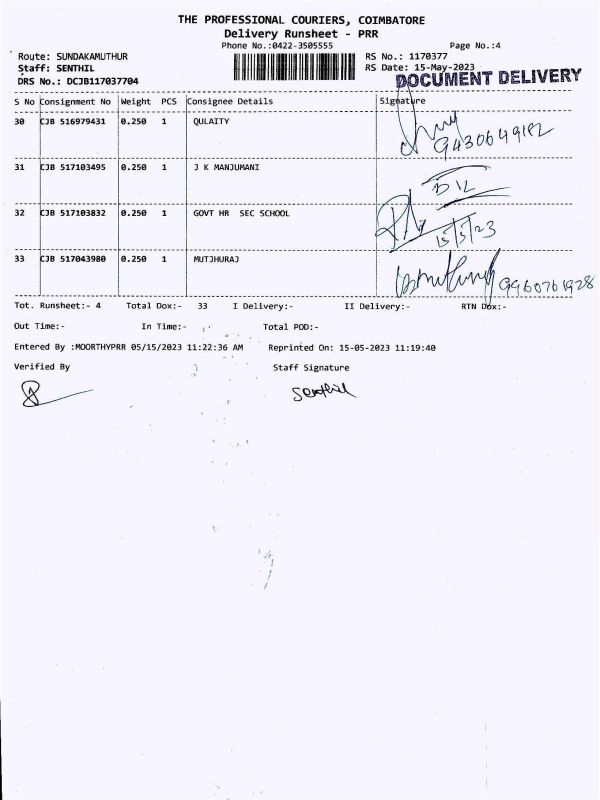 THE PROFESSIONAL COURIERS, COIMBATORE
Delivery Runsheet - PRR
Phone No.:0422-3505555 Page No.:4
Route: SUNDAKAMUTHUR RS No.: 1170377
Staff: SENTHIL RS Date: 15-May-2023
DRS No.: DCJB117037704 DOCUMENT DELIVERY
S No Consignment No Weight PCS Consignee Details Signature
30 CJB 516979431 0.250 1 QULAITY
9430649182
31 CJB 517103495 0.250 1 J K MANJUMANI
D/L
32 CJB 517103832 0.250 1 GOVT HR SEC SCHOOL
15/5/23
33 CJB 517043980 0.250 1 MUTJHURAJ
9960761928
Tot. Runsheet:- 4 Total Dox:- 33 I Delivery:- II Delivery:- RTN Dox:-
Out Time:- In Time:- Total POD:-
Entered By :MOORTHYPRR 05/15/2023 11:22:36 AM Reprinted On: 15-05-2023 11:19:40
Verified By Staff Signature
Senthil